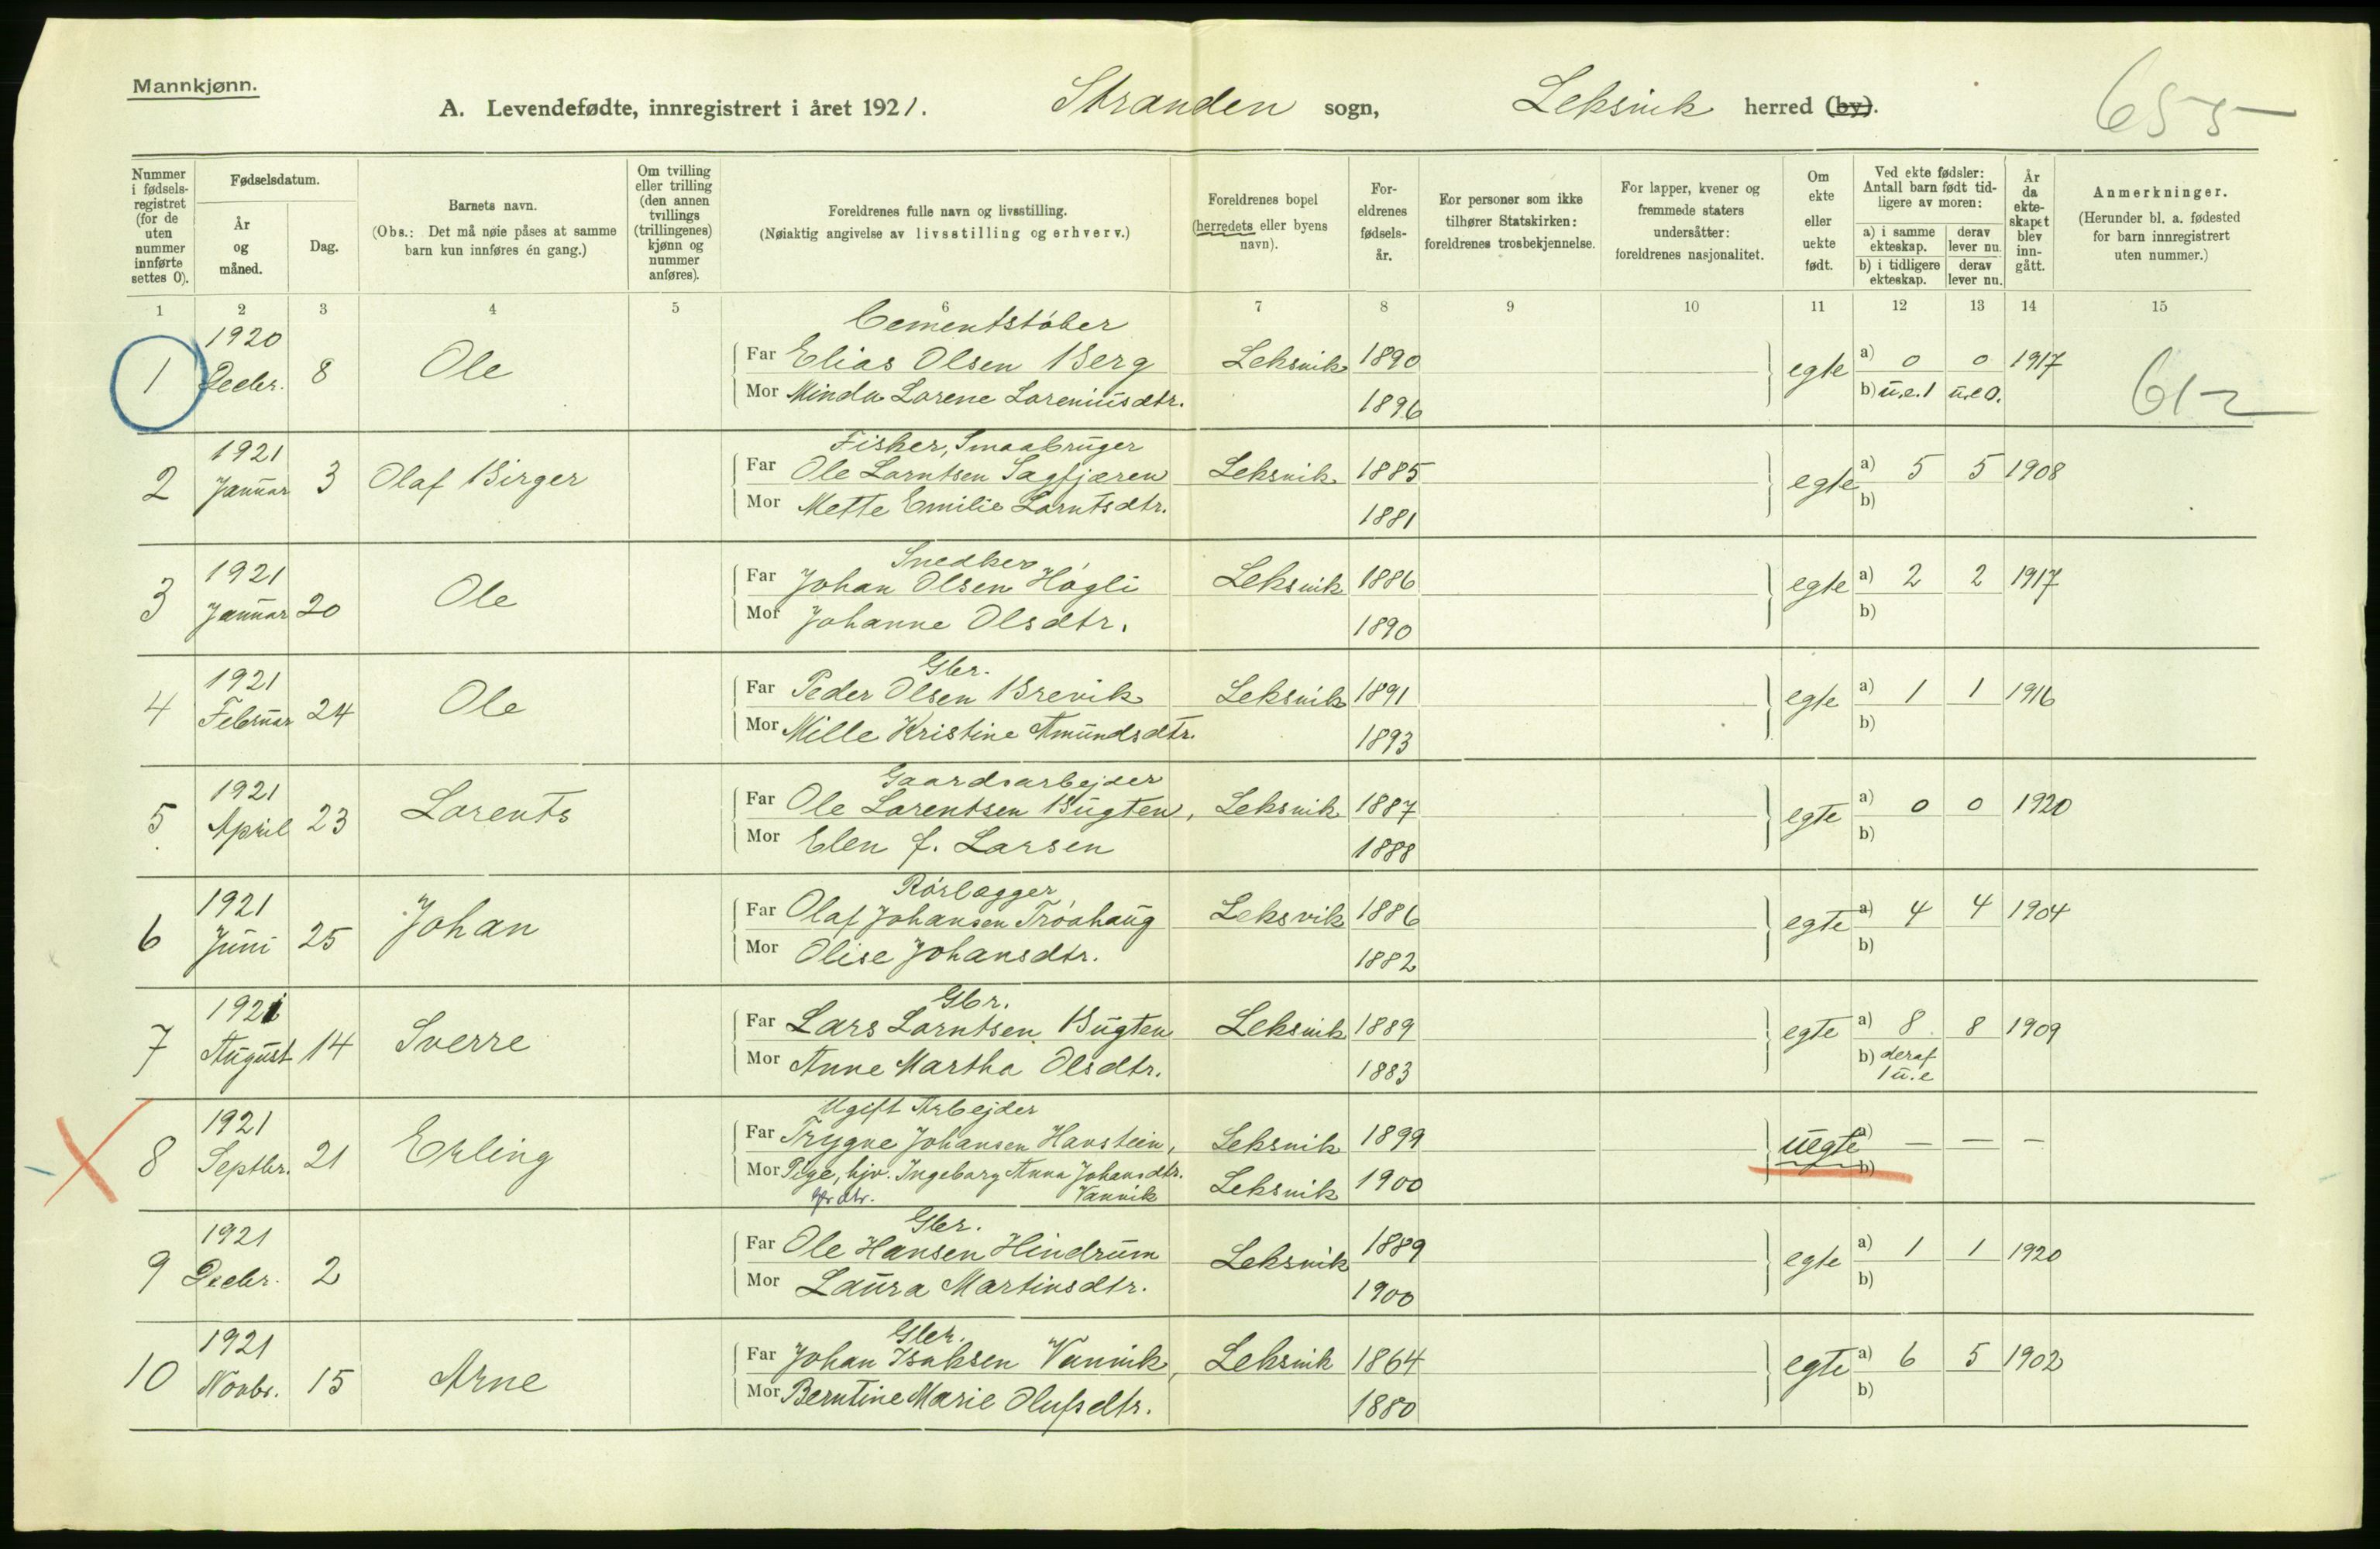 Mannkjønn.
A. Levendefødte, innregistrert i året 1921. Stranden sogn, Leksvik herred (by).
655
Nummer i fødsels- registret (for de uten nummer innførte settes 0).
Fødselsdatum.
År og måned.
Dag.
Barnets navn.
(Obs.: Det må nøie påses at samme barn kun innføres én gang.)
Om tvilling eller trilling (den annen tvillings (trillingenes) kjønn og nummer anføres).
Foreldrenes fulle navn og livsstilling.
(Nøiaktig angivelse av livsstilling og erhverv.)
Foreldrenes bopel (herredets eller byens navn).
For- eldrenes fødsels- år.
For personer som ikke tilhører Statskirken: foreldrenes trosbekjennelse.
For lapper, kvener og fremmede staters undersåtter: foreldrenes nasjonalitet.
Om ekte eller uekte født.
Ved ekte fødsler: Antall barn født tid- ligere av moren:
a) i samme ekteskap.
derav lever nu.
b) i tidligere ekteskap.
derav lever nu.
År da ekte- skapet blev inn- gått.
Anmerkninger.
(Herunder bl. a. fødested for barn innregistrert uten nummer.)
1 2 3 4 5 6 7 8 9 10 11 12 13 14 15
1920 Cementstøber
1 Decbr. 8 Ole Far Elias Olsen Berg Leksvik 1890 egte a) 0 0 1917
Mor Minda Lorene Loreniusdtr. 1896 b) u.e.1 u.e 0. 612
1921 Fisker, Smaabruger
2 Januar 3 Olaf Birger Far Ole Lorntsen Sagfjæren Leksvik 1885 egte a) 5 5 1908
Mor Mette Emilie Lorntsdtr. 1881 b)
1921 Snedker
3 Januar 20 Ole Far Johan Olsen Høgli Leksvik 1886 egte a) 2 2 1917
Mor Johanne Olsdtr. 1890 b)
1921 Gbr.
4 Februar 24 Ole Far Peder Olsen Brevik Leksvik 1891 egte a) 1 1 1916
Mor Mille Kristine Amundsdtr. 1893 b)
1921 Gaardsarbejder
5 April 23 Lorents Far Ole Lorentsen Bugten, Leksvik 1887 egte a) 0 0 1920
Mor Elen f. Larsen 1888 b)
1921 Rørlægger
6 Juni 25 Johan Far Olaf Johansen Trøahaug Leksvik 1886 egte a) 4 4 1904
Mor Olise Johansdtr. 1882 b)
1921 Gbr.
7 August 14 Sverre Far Lars Lorntsen Bugten Leksvik 1889 egte a) 8 8 1909
Mor Anne Martha Olsdtr. 1883 b) deraf 1 u.e
1921 Ugift Arbejder
8 Septbr. 21 Erling Far Trygve Johansen Hanstein, Leksvik 1899 uegte a) — — —
Mor Pige, hjv. Ingeborg Anna Johansdtr. Leksvik 1900 b)
Vannik
1921 Gbr.
9 Decbr. 2 Far Ole Hansen Hindrum Leksvik 1889 egte a) 1 1 1920
Mor Laura Martinsdtr. 1900 b)
1921 Gbr.
10 Novbr. 15 Arne Far Johan Isaksen Vannik, Leksvik 1864 egte a) 6 5 1902
Mor Berntine Marie Olufsdtr. 1880 b)